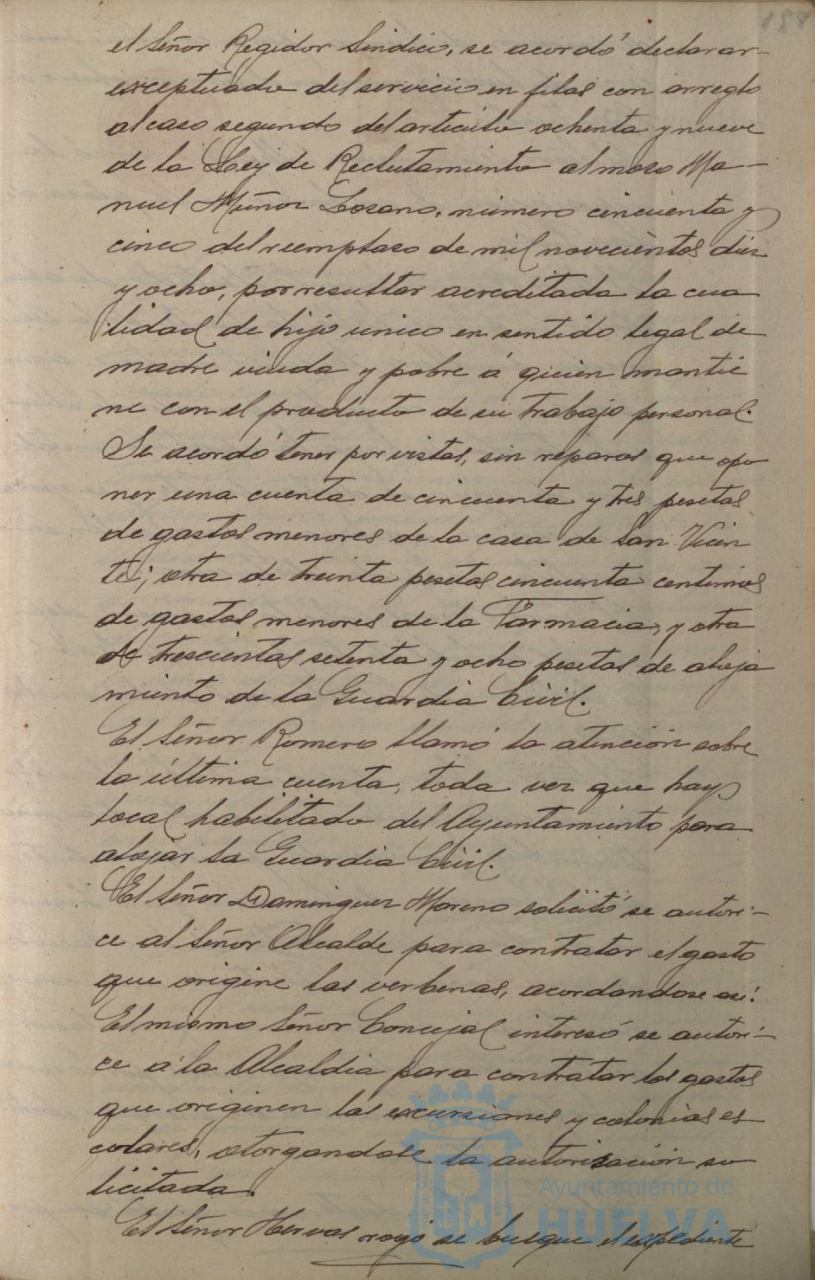 188
el Señor Regidor Sindico, se acordó declarar
exceptuado del servicio en filas con arreglo
al caso segundo del articulo ochenta y nueve
de la Ley de Reclutamiento al mozo Ma-
nuel Muñoz Lozano, número cincuenta y
cinco del reemplazo de mil novecientos diez
y ocho, por resultar acreditada la cua
lidad de hijo unico en sentido legal de
madre viuda y pobre á quien mantie
ne con el producto de su trabajo personal.
Se acordó tener por vistas, sin reparos que opo
ner una cuenta de cincuenta y tres pesetas
de gastos menores de la casa de San Vicen
te; otra de treinta pesetas cincuenta centimos
de gastos menores de la Farmacia, y otra
de trescientas setenta y ocho pesetas de aloja
miento de la Guardia Civil.
El Señor Romero llamó la atención sobre
la última cuenta, toda vez que hay
local habilitado del Ayuntamiento para
alojar la Guardia Civil.
El Señor Dominguez Moreno solicitó se autori-
ce al Señor Alcalde para contratar el gasto
que origine las verbenas, acordandose así.
El mismo Señor Concejal interesó se autori-
ce a la Alcaldia para contratar los gastos
que originen las excursiones y colonias es
colares, otorgandose la autorización so
licitada.
El Señor Hervas rogó se busque el expediente
Ayuntamiento de
HUELVA